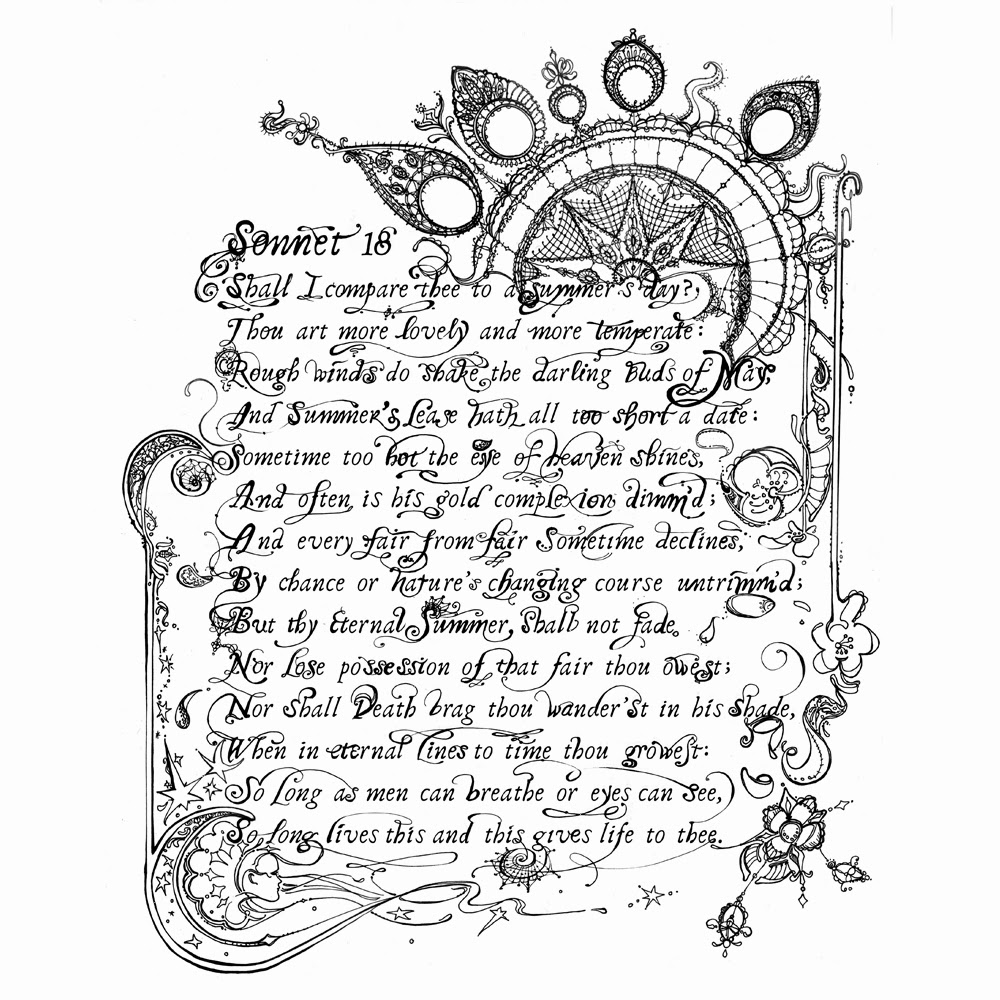 Sonnet 18
Shall I compare thee to a summer's day?,
Thou art more lovely and more temperate:
Rough winds do shake the darling Buds of May,
And Summer's Lease hath all too short a date:
Sometime too hot the eye of heaven shines,
And often is his gold complexion dimm'd;
And every fair from fair Sometime declines,
By chance or Nature's changing course untrimm'd;
But thy Eternal Summer, Shall not fade.
Nor Lose possession of that fair thou owest;
Nor shall Death brag thou wander'St in his shade,
When in eternal Lines to time thou growest:
So Long as men can breathe or eyes can see,
So long lives this and this gives life to thee.